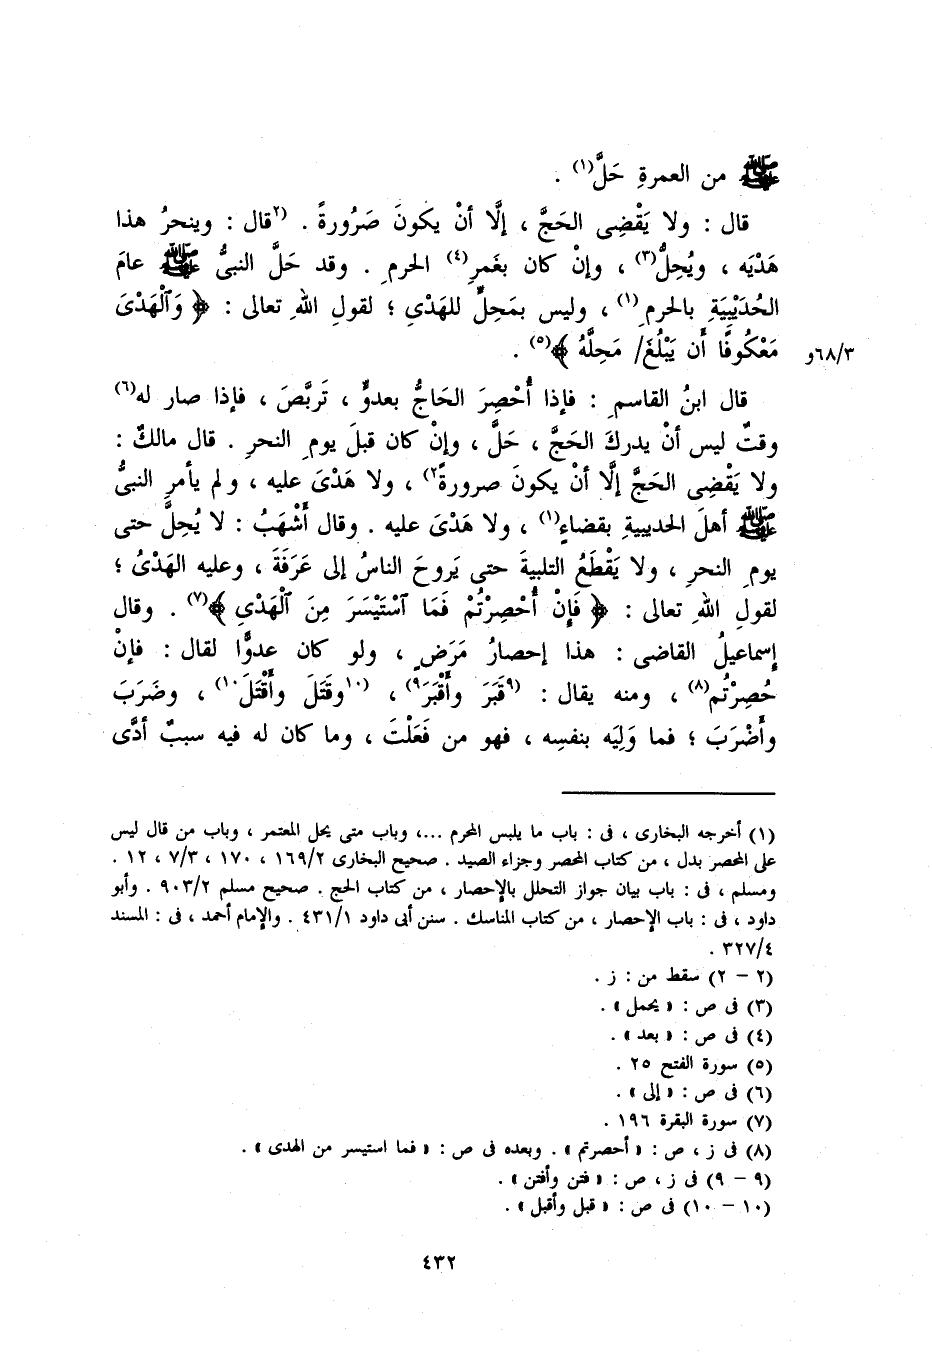 ﷺ من العمرةِ حَلَّ(١) .
قال : ولا يَقْضِى الحَجَّ ، إلَّا أنْ يكونَ صَرُورةً . (٢قال : وينحرُ هذا
هَدْيَه ، ويُحِلُّ(٣) ، وإنْ كان بغَمرِ(٤) الحرمِ . وقد حَلَّ النبىُّ ﷺ عامَ
الحُدَيْبِيَةِ بالحرمِ(١) ، وليس بمَحِلٍّ للهَدْىِ ؛ لقولِ اللهِ تعالى : ﴿ وَٱلْهَدْىَ
مَعْكُوفًا أَن يَبْلُغَ/ مَحِلَّهُ ﴾(٥) .
٦٨/٣و
قال ابنُ القاسمِ : فإذا أُحْصِرَ الحَاجُّ بعدوٍّ ، تَربَّصَ ، فإذا صار له(٦)
وقتٌ ليس أنْ يدركَ الحَجَّ ، حَلَّ ، وإنْ كان قبلَ يومِ النحرِ . قال مالكٌ :
ولا يَقْضِى الحَجَّ إلَّا أنْ يكونَ صرورةً٢) ، ولا هَدْىَ عليه ، ولم يأمرِ النبىُّ
ﷺ أهلَ الحديبيةِ بقضاءٍ(١) ، ولا هَدْىَ عليه . وقال أَشْهَبُ : لا يُحِلَّ حتى
يومِ النحرِ ، ولا يَقْطَعُ التلبيةَ حتى يَروحَ الناسُ إلى عَرَفَةَ ، وعليه الهَدْىُ ؛
لقولِ اللهِ تعالى : ﴿ فَإِنْ أُحْصِرْتُمْ فَمَا ٱسْتَيْسَرَ مِنَ ٱلْهَدْىِ ﴾(٧) . وقال
إسماعيلُ القاضى : هذا إحصارُ مَرَضٍ ، ولو كان عدوًّا لقال : فإنْ
حُصِرْتُم(٨) ، ومنه يقال : (٩قَبَرَ وأَقْبَرَ٩) ، (١٠وقَتَلَ وأَقْتَلَ١٠) ، وضَرَبَ
وأَضْرَبَ ؛ فما وَلِيَه بنفسِه ، فهو من فَعَلْتَ ، وما كان له فيه سببٌ أدَّى
(١) أخرجه البخارى ، فى : باب ما يلبس المحرم ...، وباب متى يحل المعتمر ، وباب من قال ليس
على المحصر بدل ، من كتاب المحصر وجزاء الصيد . صحيح البخارى ١٦٩/٢ ، ١٧٠ ، ٧/٣ ، ١٢ .
ومسلم ، فى : باب بيان جواز التحلل بالإحصار ، من كتاب الحج . صحيح مسلم ٩٠٣/٢ . وأبو
داود ، فى : باب الإحصار ، من كتاب المناسك . سنن أبى داود ٤٣١/١ . والإمام أحمد ، فى : المسند
٣٢٧/٤ .
(٢ – ٢) سقط من : ز .
(٣) فى ص : « يحمل » .
(٤) فى ص : « بعد » .
(٥) سورة الفتح ٢٥ .
(٦) فى ص : « إلى » .
(٧) سورة البقرة ١٩٦ .
(٨) فى ز ، ص : « أحصرتم » . وبعده فى ص : « فما استيسر من الهدى » .
(٩ – ٩) فى ز ، ص : « فتن وأفتن » .
(١٠ – ١٠) فى ص : « قبل وأقبل » .
٤٣٢